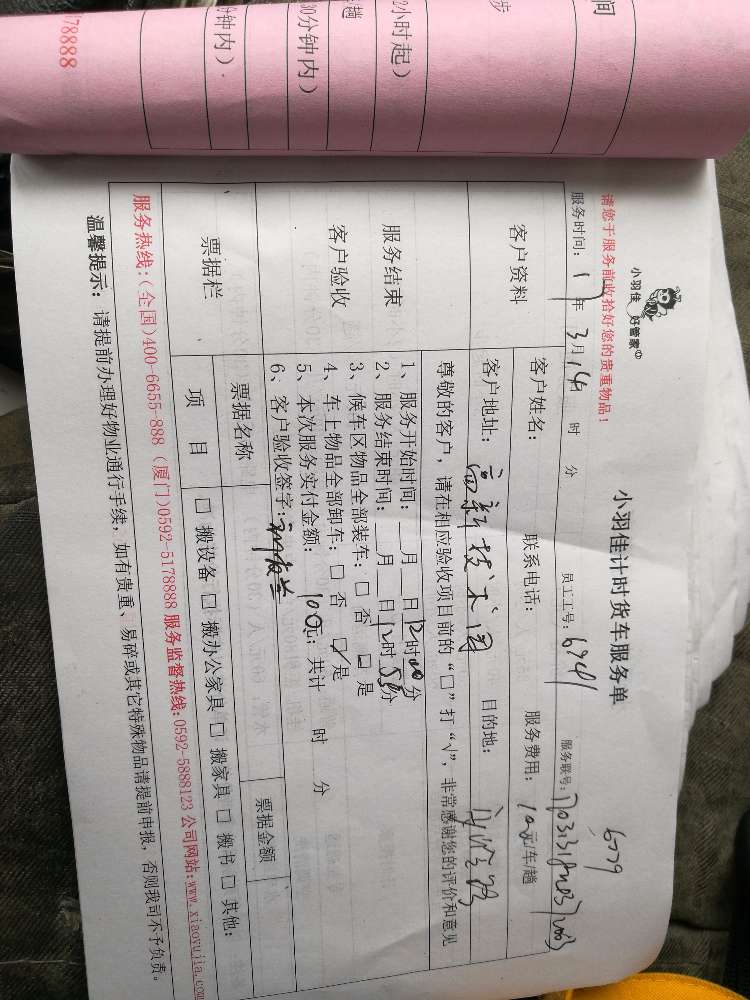 间
步
2小时起)
趟
30分钟内)
分钟内)
78888
请您于服务前收拾好您的贵重物品!
小羽佳 好管家
小羽佳计时货车服务单
6779
服务时间: 17年3月14 时 分
员工工号: 6741
服务联号:
客户资料
客户姓名:
联系电话:
服务费用: 100元/车/趟
客户地址: 高新技术园
目的地:
服务结束
客户验收
尊敬的客户,请在相应验收项目前的“□”打“√”,非常感谢您的评价和意见
1、服务开始时间: 月 日12时00分
2、服务结束时间: 月 日12时58分
3、候车区物品全部装车: □ 否 □ 是
4、车上物品全部卸车: □ 否 □ 是
5、本次服务实付金额: 100元; 共计 时 分
6、客户验收签字:
票据栏
票据名称
票据金额
项 目
□ 搬设备 □ 搬办公家具 □ 搬家具 □ 搬书 □ 其他:
服务热线:(全国)400-6655-888 (厦门)0592-5178888 服务监督热线:0592-5888123 公司网站:www.xiaoyujia.com
温馨提示: 请提前办理好物业通行手续,如有贵重、易碎或其它特殊物品请提前申报,否则我司不予负责。